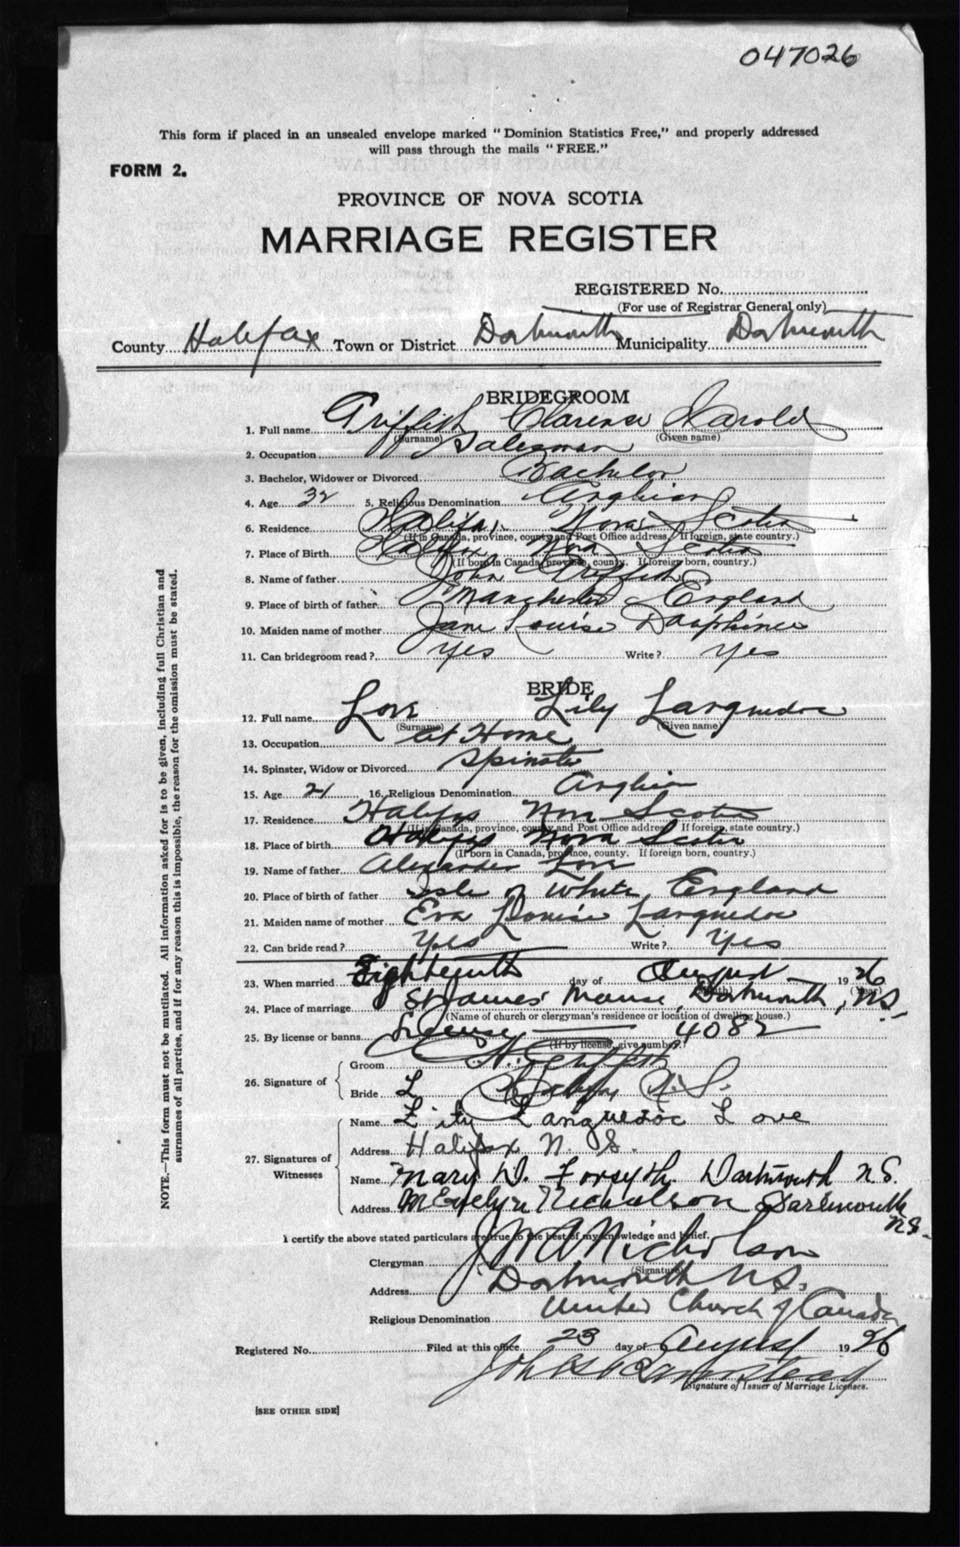 047026
This form if placed in an unsealed envelope marked "Dominion Statistics Free," and properly addressed
will pass through the mails "FREE."
FORM 2.
PROVINCE OF NOVA SCOTIA
MARRIAGE REGISTER
REGISTERED No.
(For use of Registrar General only)
County Halifax Town or District Dartmouth Municipality Dartmouth
BRIDEGROOM
1. Full name Griffith Clarence Harold
(Surname) (Given name)
2. Occupation Salesman
3. Bachelor, Widower or Divorced Bachelor
4. Age 32 5. Religious Denomination Anglican
6. Residence Halifax Nova Scotia
(If in Canada, province, county and Post Office address. If foreign, state country.)
7. Place of Birth Halifax Nova Scotia
(If born in Canada, province, county. If foreign born, country.)
8. Name of father John Griffith
9. Place of birth of father Manchester England
10. Maiden name of mother Jane Louise Dauphinee
11. Can bridegroom read? Yes Write? Yes
BRIDE
12. Full name Love Lily Languedoc
(Surname) (Given name)
13. Occupation At Home
14. Spinster, Widow or Divorced Spinster
15. Age 21 16. Religious Denomination Anglican
17. Residence Halifax Nova Scotia
(If in Canada, province, county and Post Office address. If foreign, state country.)
18. Place of birth Halifax Nova Scotia
(If born in Canada, province, county. If foreign born, country.)
19. Name of father Alexander Love
20. Place of birth of father Isle of White, England
21. Maiden name of mother Eva Louise Languedoc
22. Can bride read? Yes Write? Yes
23. When married Eighteenth day of August 1926
24. Place of marriage St James' Manse, Dartmouth, N.S.
(Name of church or clergyman's residence or location of dwelling house.)
25. By license or banns License 4082
(If by license, give number.)
26. Signature of
Groom H. Griffith
Bride L Halifax N.S.
27. Signatures of Witnesses
Name Lily Languedoc Love
Address Halifax N.S.
Name Mary D. Forsyth. Dartmouth N.S.
Address M Evelyn Nicholson Dartmouth N.S.
I certify the above stated particulars are true to the best of my knowledge and belief.
Clergyman Nicholson
(Signature)
Address Dartmouth N.S.
Religious Denomination United Church of Canada
Registered No. Filed at this office 23 day of August 1926
Signature of Issuer of Marriage Licenses.
[SEE OTHER SIDE]
NOTE.—This form must not be mutilated. All information asked for is to be given, including full Christian and
surnames of all parties, and if for any reason this is impossible, the reason for the omission must be stated.